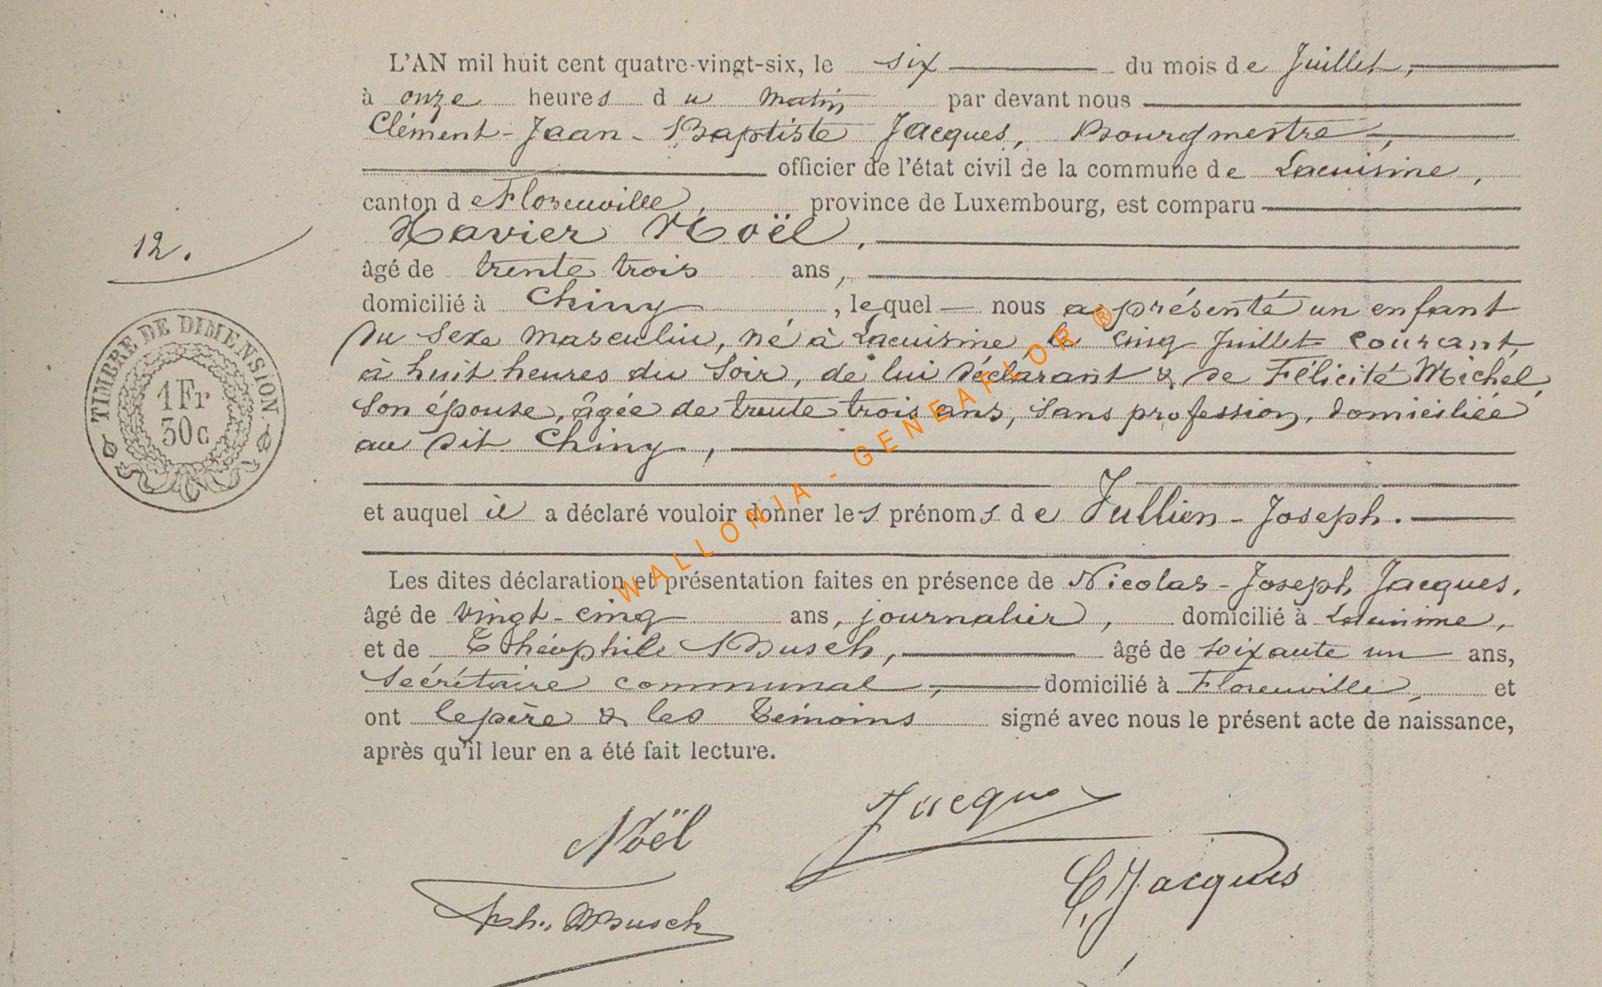 L'AN mil huit cent quatre-vingt-six, le six du mois de Juillet,
à onze heures du matin par devant nous
Clément-Jean-Baptiste Jacques, Bourgmestre,
officier de l'état civil de la commune de Lacuisine,
canton de Florenville, province de Luxembourg, est comparu
Xavier Noël,
12.
âgé de trente trois ans,
domicilié à Chiny, lequel nous a présenté un enfant
du sexe masculin, né à Lacuisine le cinq Juillet courant,
à huit heures du soir, de lui déclarant & de Félicité Michel,
son épouse, âgée de trente trois ans, sans profession, domiciliée
au dit Chiny,
TIMBRE DE DIMENSION.
1 Fr
30 c
et auquel il a déclaré vouloir donner les prénoms de Jullien-Joseph.
Les dites déclaration et présentation faites en présence de Nicolas-Joseph Jacques,
âgé de vingt-cinq ans, journalier, domicilié à Lacuisine,
et de Théophile Busch, âgé de soixante un ans,
Secrétaire communal, domicilié à Florenville, et
ont le père & les témoins signé avec nous le présent acte de naissance,
après qu'il leur en a été fait lecture.
WALLONIA - GENEAFLOR ®
Jacques
Noël
C. Jacques
Th. Busch